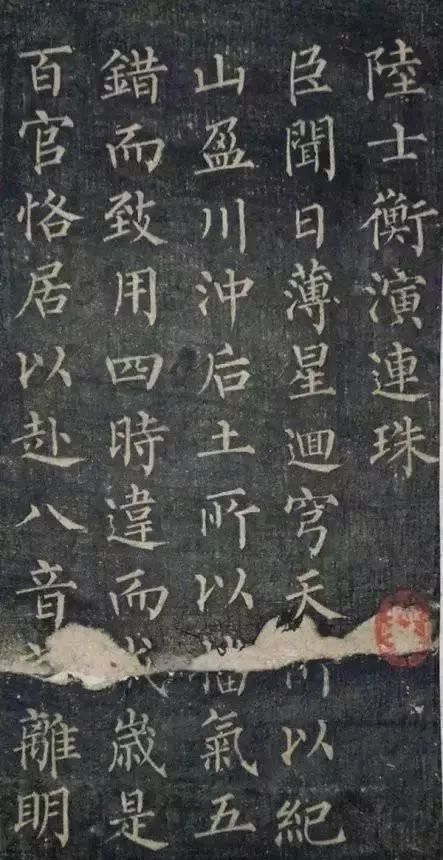 陸士衡演連珠
臣聞日薄星迴穹天所以紀
山盈川沖后土所以播氣五
錯而致用四時違而成歲是
百官恪居以赴八音離明